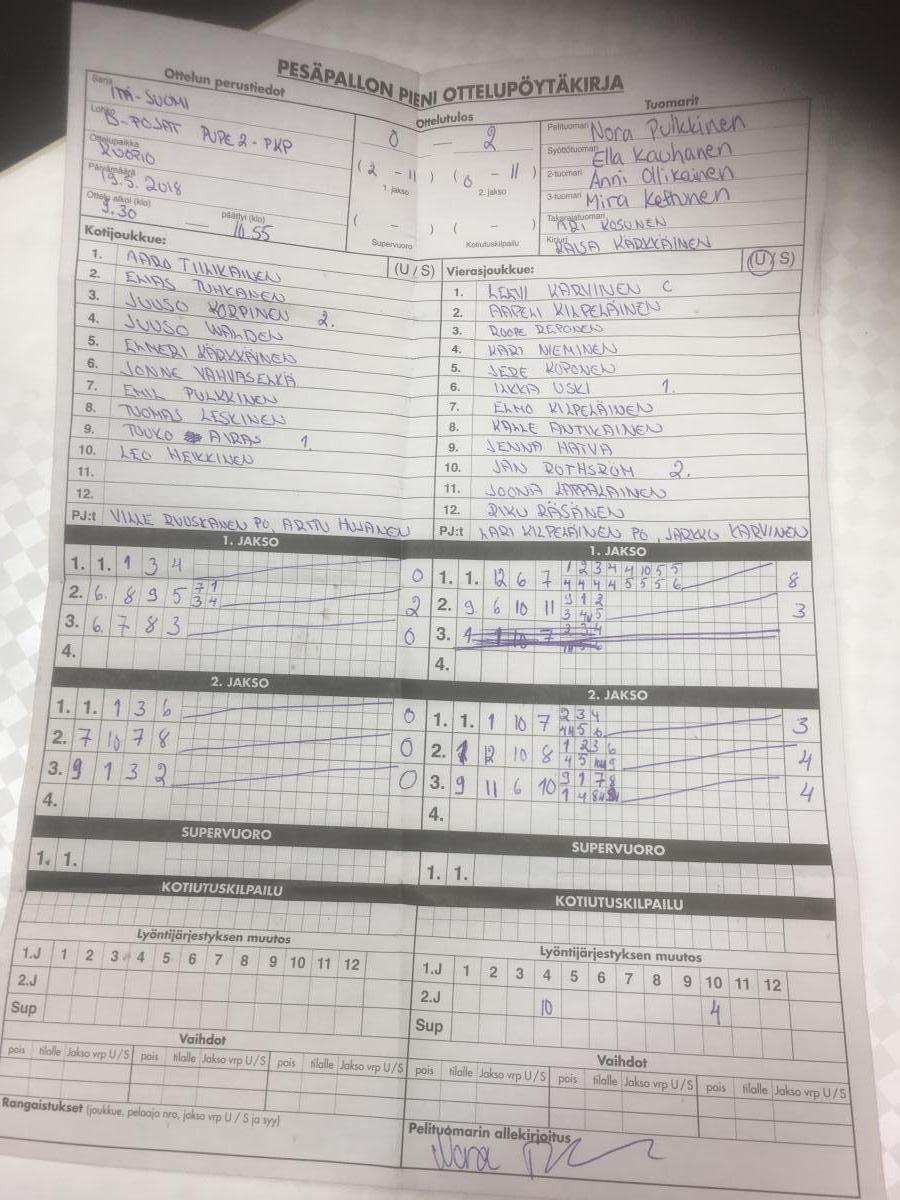 PESÄPALLON PIENI OTTELUPÖYTÄKIRJA
Ottelun perustiedot
Sarja ITÄ-SUOMI
Lohko B-POJAT PUPE 2 - PKP
Ottelupaikka KUOPIO
Päivämäärä 19.5. 2018
Ottelu alkoi (klo) 9.30 — päättyi (klo) 10.55
Ottelutulos
0 — 2
( 2 - 11 ) ( 0 - 11 )
1. jakso 2. jakso
( - ) ( - )
Supervuoro Kotiutuskilpailu
Tuomarit
Pelituomari Nora Pulkkinen
Syöttötuomari Ella Kauhanen
2-tuomari Anni Ollikainen
3-tuomari Mira Kettunen
Takarajatuomari ARI KOSUNEN
Kirjuri RAISA KÄRKKÄINEN
Kotijoukkue: (U / S)
1. AARO TIILIKAINEN
2. ELIAS TUHKANEN
3. JUUSO KORPINEN 2.
4. JUUSO WALDEN
5. ELMERI KÄRKKÄINEN
6. JONNE VAHVASELKÄ
7. EMIL PULKKINEN
8. TUOMAS LESKINEN
9. TOUKO AIRAS 1.
10. LEO HEIKKINEN
11.
12.
PJ:t VILLE RUUSKANEN PO, ARTTU HUJANEN
Vierasjoukkue: (U / S)
1. LEEVI KARVINEN C
2. AAPELI KILPELÄINEN
3. ROOPE REPONEN
4. KARI NIEMINEN
5. JERE KOPONEN
6. IIKKA USKI 1.
7. ELMO KILPELÄINEN
8. KALLE ANTIKAINEN
9. JENNA HATVA
10. JAN ROTHSRÖM 2.
11. JOONA LAPPALAINEN
12. RIKU RÄSÄNEN
PJ:t KARI KILPELÄINEN PO, JARKKO KARVINEN
1. JAKSO
1. 1. 1 3 4 0
2. 6. 8 9 5 7 1 2
3 4
3. 6. 7 8 3 0
4.
2. JAKSO
1. 1. 1 3 6 0
2. 7 10 7 8 0
3. 9 1 3 2 0
4.
SUPERVUORO
1. 1.
KOTIUTUSKILPAILU
Lyöntijärjestyksen muutos
1.J 1 2 3 4 5 6 7 8 9 10 11 12
2.J
Sup
Vaihdot
pois tilalle Jakso vrp U/S pois tilalle Jakso vrp U/S pois tilalle Jakso vrp U/S
Rangaistukset (joukkue, pelaaja nro, jakso vrp U / S ja syy)
1. JAKSO
1. 1. 12 6 7 1 2 3 4 4 10 5 5 8
4 4 4 4 5 5 5 6
2. 9 6 10 11 9 1 2 3
3.
4.
2. JAKSO
1. 1. 1 10 7 2 3 4 3
2. 12 10 8 1 2 3 6 4
3. 9 11 6 10 9 1 7 8 4
4.
SUPERVUORO
1. 1.
KOTIUTUSKILPAILU
Lyöntijärjestyksen muutos
1.J 1 2 3 4 5 6 7 8 9 10 11 12
2.J 10 4
Sup
Vaihdot
pois tilalle Jakso vrp U/S pois tilalle Jakso vrp U/S pois tilalle Jakso vrp U/S
Pelituomarin allekirjoitus
Nora